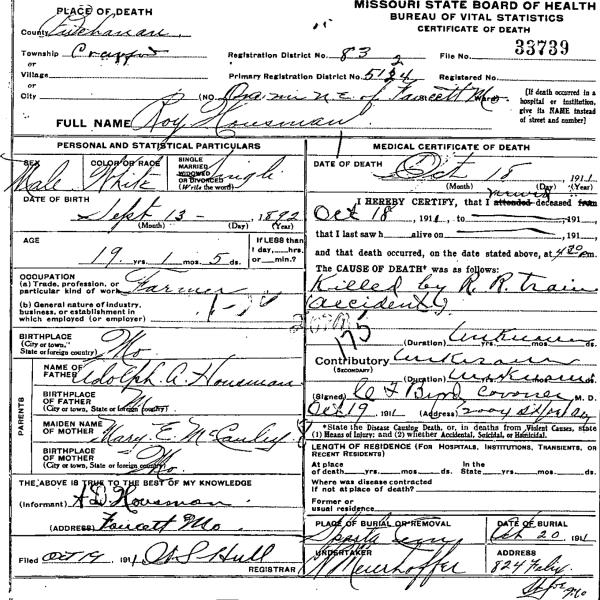 MISSOURI STATE BOARD OF HEALTH
BUREAU OF VITAL STATISTICS
CERTIFICATE OF DEATH
PLACE OF DEATH
County Buchanan
Township Crawford
or
Village
or
City
Registration District No. 83
File No. 33739
Primary Registration District No. 5124
Registered No.
(NO. One mi N.E. of Faucett Mo Ward)
[If death occurred in a
hospital or institution,
give its NAME instead
of street and number]
FULL NAME Roy Housman
PERSONAL AND STATISTICAL PARTICULARS
SEX
Male
COLOR OR RACE
White
SINGLE
MARRIED
WIDOWED
OR DIVORCED
(Write the word)
Single
DATE OF BIRTH
Sept 13 - 1892
(Month) (Day) (Year)
AGE
19 yrs. 1 mos. 5 ds.
If LESS than
1 day, hrs.
or min.?
OCCUPATION
(a) Trade, profession, or
particular kind of work Farmer
(b) General nature of industry,
business, or establishment in
which employed (or employer)
BIRTHPLACE
(City or town,
State or foreign country) Mo.
PARENTS
NAME OF
FATHER Adolph A. Housman
BIRTHPLACE
OF FATHER
(City or town, State or foreign country) Mo.
MAIDEN NAME
OF MOTHER Mary E. McCauley
BIRTHPLACE
OF MOTHER
(City or town, State or foreign country) Mo.
THE ABOVE IS TRUE TO THE BEST OF MY KNOWLEDGE
(Informant) A D Housman
(ADDRESS) Faucett Mo
Filed Oct 19 1911 Hull
REGISTRAR
MEDICAL CERTIFICATE OF DEATH
DATE OF DEATH Oct 18 1911
(Month) (Day) (Year)
I HEREBY CERTIFY, that I attended viewed deceased from
Oct 18, 1911, to , 191
that I last saw h alive on , 191
and that death occurred, on the date stated above, at 4 30 pm.
The CAUSE OF DEATH* was as follows:
Killed by R. R. train
(accident)
175
(Duration) Unknown yrs. mos. ds.
Contributory Unknown
(SECONDARY)
(Duration) Unknown yrs. mos. ds.
(Signed) C F Byrd Coroner M. D.
Oct 19 1911 (Address) 2004
*State the Disease Causing Death, or, in deaths from Violent Causes, state
(1) Means of Injury; and (2) whether Accidental, Suicidal, or Homicidal.
LENGTH OF RESIDENCE (For Hospitals, Institutions, Transients, or
Recent Residents)
At place
of death yrs. mos. ds.
In the
State yrs. mos. ds.
Where was disease contracted
if not at place of death?
Former or
usual residence
PLACE OF BURIAL OR REMOVAL
Sparta Cemy
DATE OF BURIAL
Oct 20 1911
UNDERTAKER
Meierhoffer
ADDRESS
824
St Joe Mo